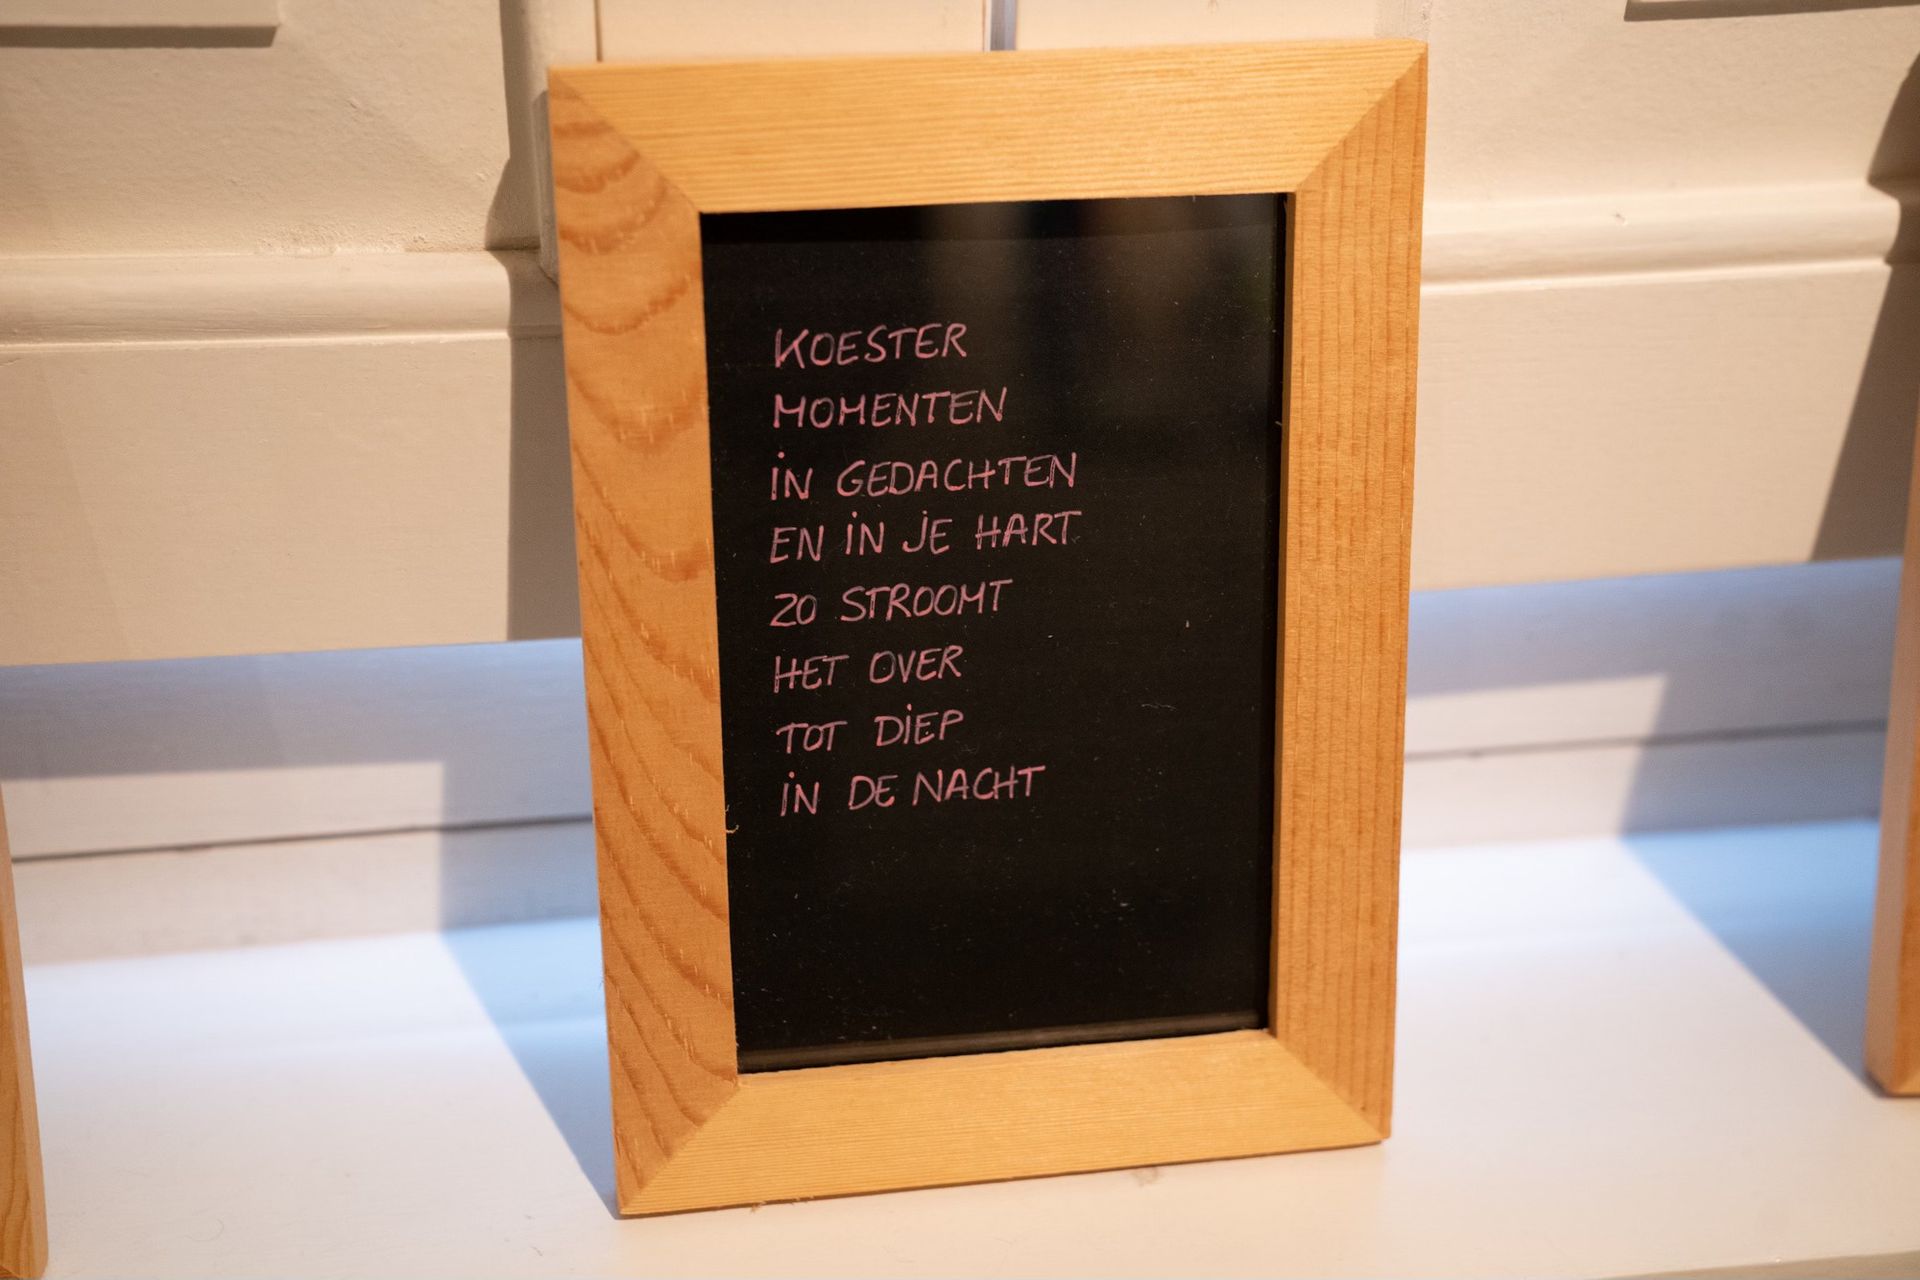 KOESTER
MOMENTEN
iN GEDACHTEN
EN iN jE HART
ZO STROOMT
HET OVER
TOT DiEP
iN DE NACHT